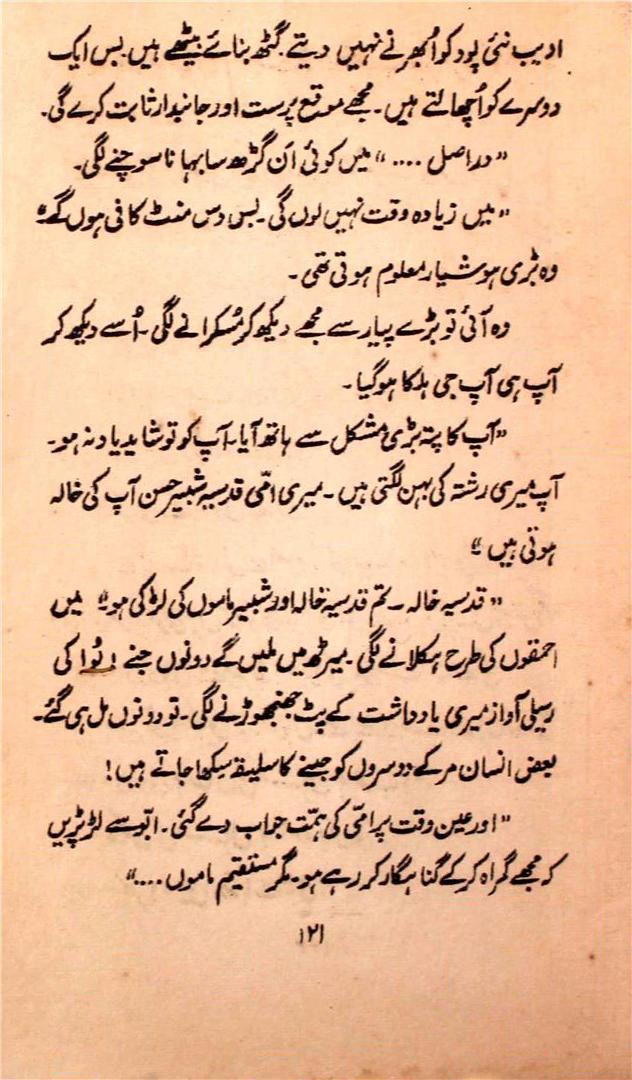 ادیب نئی پود کو اُبھرنے نہیں دیتے۔ گٹھ بنائے بیٹھے ہیں۔ بس ایک
دوسرے کو اُچھالتے ہیں۔ مجھے موقع پرست اور جانبدار ثابت کرے گی۔
"دراصل ...." میں کوئی اَن گڑھ سا بہانا سوچنے لگی۔
"میں زیادہ وقت نہیں لوں گی۔ بس دس منٹ کافی ہوں گے"
وہ بڑی ہوشیار معلوم ہوتی تھی۔
وہ آئی تو بڑے پیار سے مجھے دیکھ کر مُسکرانے لگی۔ اُسے دیکھ کر
آپ ہی آپ جی ہلکا ہوگیا۔
"آپ کا پتہ بڑی مشکل سے ہاتھ آیا۔ آپ کو تو شاید یاد نہ ہو۔
آپ میری رشتہ کی بہن لگتی ہیں۔ میری امّی قدسیہ شبیر حسن آپ کی خالہ
ہوتی ہیں"
"قدسیہ خالہ۔ تم قدسیہ خالہ اور شبیر ماموں کی لڑکی ہو" میں
احمقوں کی طرح ہکلانے لگی۔ میرٹھ میں ملیں گے دونوں جنے! بُوا کی
رسیلی آواز میری یادداشت کے پٹ جھنجھوڑنے لگی۔ تو دونوں مل ہی گئے۔
بعض انسان مر کے دوسروں کو جینے کا سلیقہ سکھا جاتے ہیں!
"اور عین وقت پر امّی کی ہمّت جواب دے گئی۔ ابّو سے لڑ پڑیں
کہ مجھے گمراہ کرکے گناہگار کر رہے ہو۔ مگر مستقیم ماموں ...."
۱۲۱